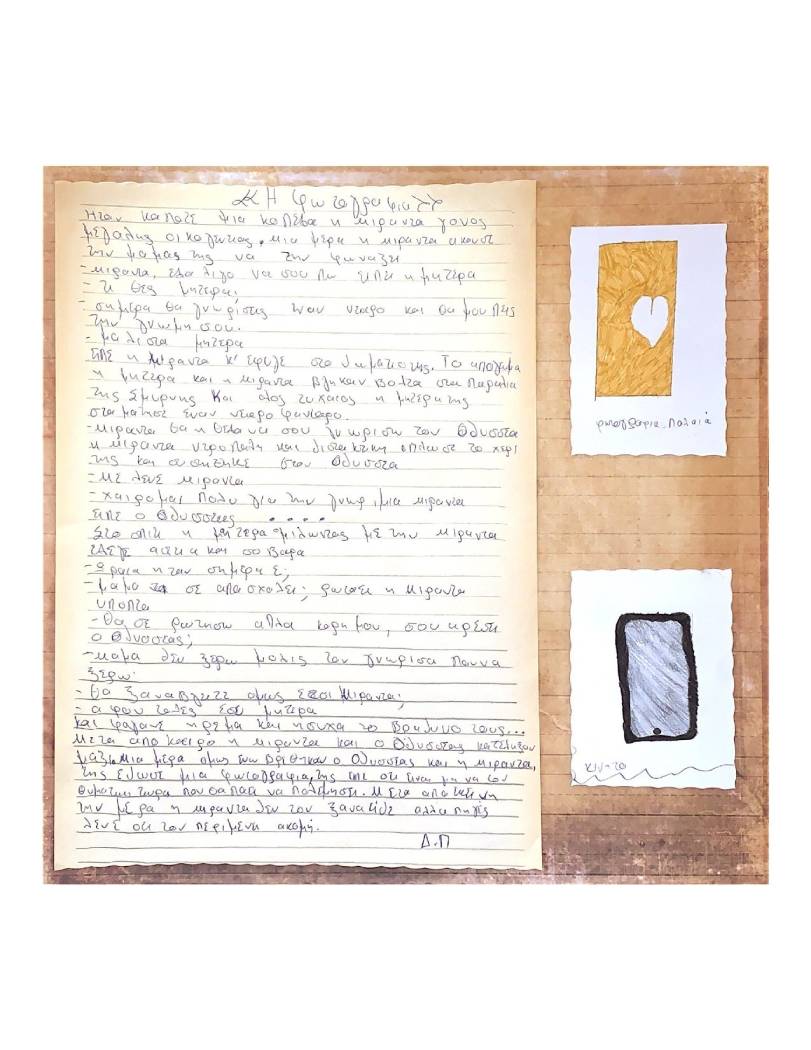 Η φωτογραφια
Ηταν καποτε μια κοπελα η μιραντα γονος
μεγαλης οικογενιας. μια μερα η μιραντα ακουσε
την μαμας της να την φωναζει
- μιραντα, ελα λιγο να σου πω ειπε η μητερα
- τι θες μητερα;
- σημερα θα γνωρισεις εναν νεαρο και θα μου πης
την γνωμη σου.
- μαλιστα μητερα
ειπε η μιραντα κ' εφυγε στο δωματιο της. Το απογευμα
η μητερα και η μιραντα βγηκαν βολτα στη παραλια
της Σμυρνης και ολος τυχαιος η μητερα της
σταματησε εναν νεαρο φανταρο.
- μιραντα θα ηθελα να σου γνωρισω τον Οδυσσεα
η μιραντα ντροπαλη και διστακτικη απλωσε το χερι
της και συστηθηκε στον Οδυσσεα
- με λενε μιραντα
- χαιρομαι πολυ για την γνωριμια μιραντα
ειπε ο Οδυσσεας ....
στο σπιτι η μητερα μιλωντας με την μιραντα
και σοβαρα
- Ωραια ηταν σημερα ε;
- μαμα σε απασχολει; ρωταει η μιραντα
υποπτα
- Θα σε ρωτησω αλλα κορη μου, σου αρεσει
ο Οδυσσεας;
- μαμα δεν ξερω μολις τον γνωρισα που να
ξερω.
- Θα ξαναβγειτε ομως εσεις Μιραντα;
- αφου το λες εσυ μητερα
και φαγανε ηρεμα και ησυχα το βραδυνο τους...
Μετα απο καιρο η μιραντα και ο Οδυσσεας κατεληξαν
μαζι. μια μερα ομως που βρεθηκαν ο Οδυσσεας και η μιραντα,
της εδωσε μια φωτογραφια, της ειπε οτι ειναι για να τον
θυμαται τωρα που θα παει να πολεμησει. Μετα απο εκεινη
την μερα η μιραντα δεν τον ξαναειδε αλλα πηγες
λενε οτι τον περιμενει ακομη.
Δ.Π
φωτογραφια παλαιά
κινητο